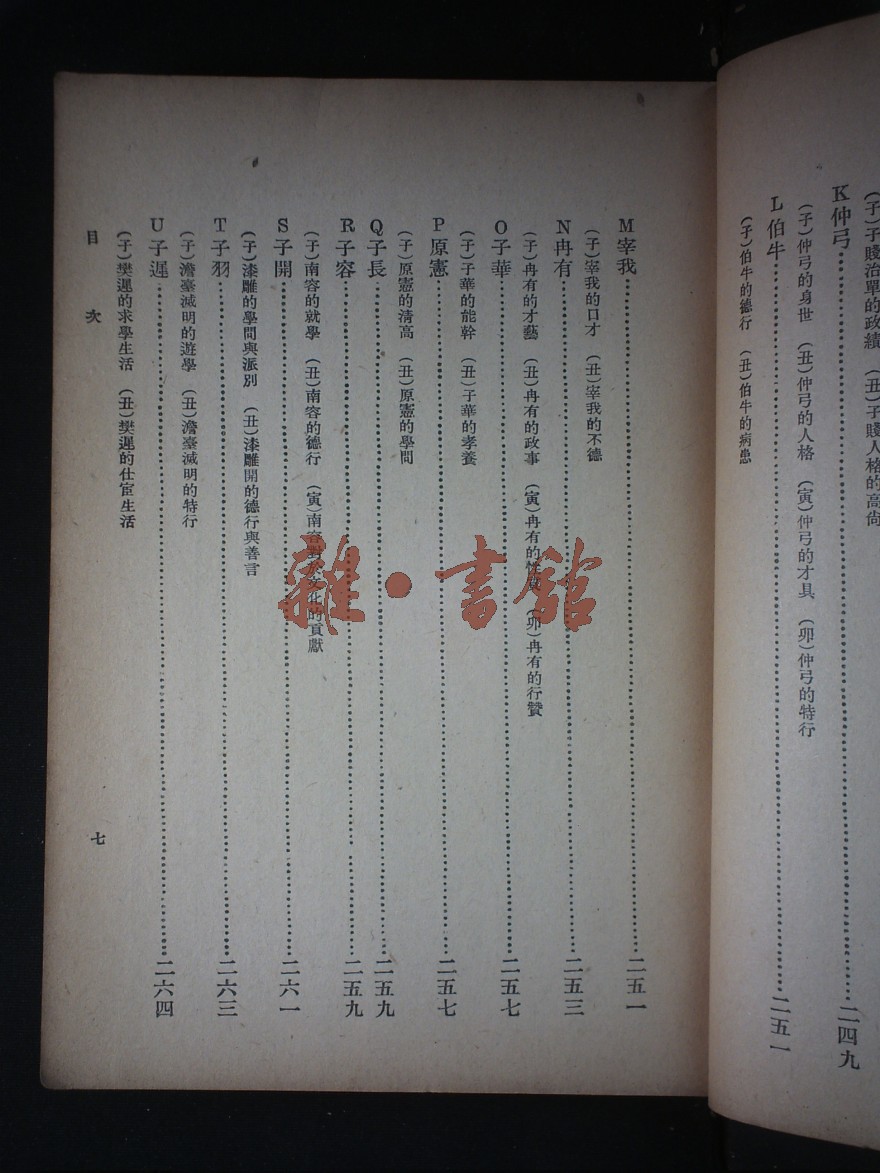 (子)子賤治單的政績　(丑)子賤人格的高尚
K 仲弓……二四九
(子)仲弓的身世　(丑)仲弓的人格　(寅)仲弓的才具　(卯)仲弓的特行
L 伯牛……二五一
(子)伯牛的德行　(丑)伯牛的病患
M 宰我……二五一
(子)宰我的口才　(丑)宰我的不德
N 冉有……二五三
(子)冉有的才藝　(丑)冉有的政事　(寅)冉有的性　(卯)冉有的行贊
O 子華……二五七
(子)子華的能幹　(丑)子華的孝養
P 原憲……二五七
(子)原憲的清高　(丑)原憲的學問
Q 子長……二五九
R 子容……二五九
(子)南容的就學　(丑)南容的德行　(寅)南容對於文化的貢獻
S 子開……二六一
(子)漆雕的學問與派別　(丑)漆雕開的德行與善言
T 子羽……二六三
(子)澹臺滅明的遊學　(丑)澹臺滅明的特行
U 子遲……二六四
(子)樊遲的求學生活　(丑)樊遲的仕宦生活
目次
七
雜·書館